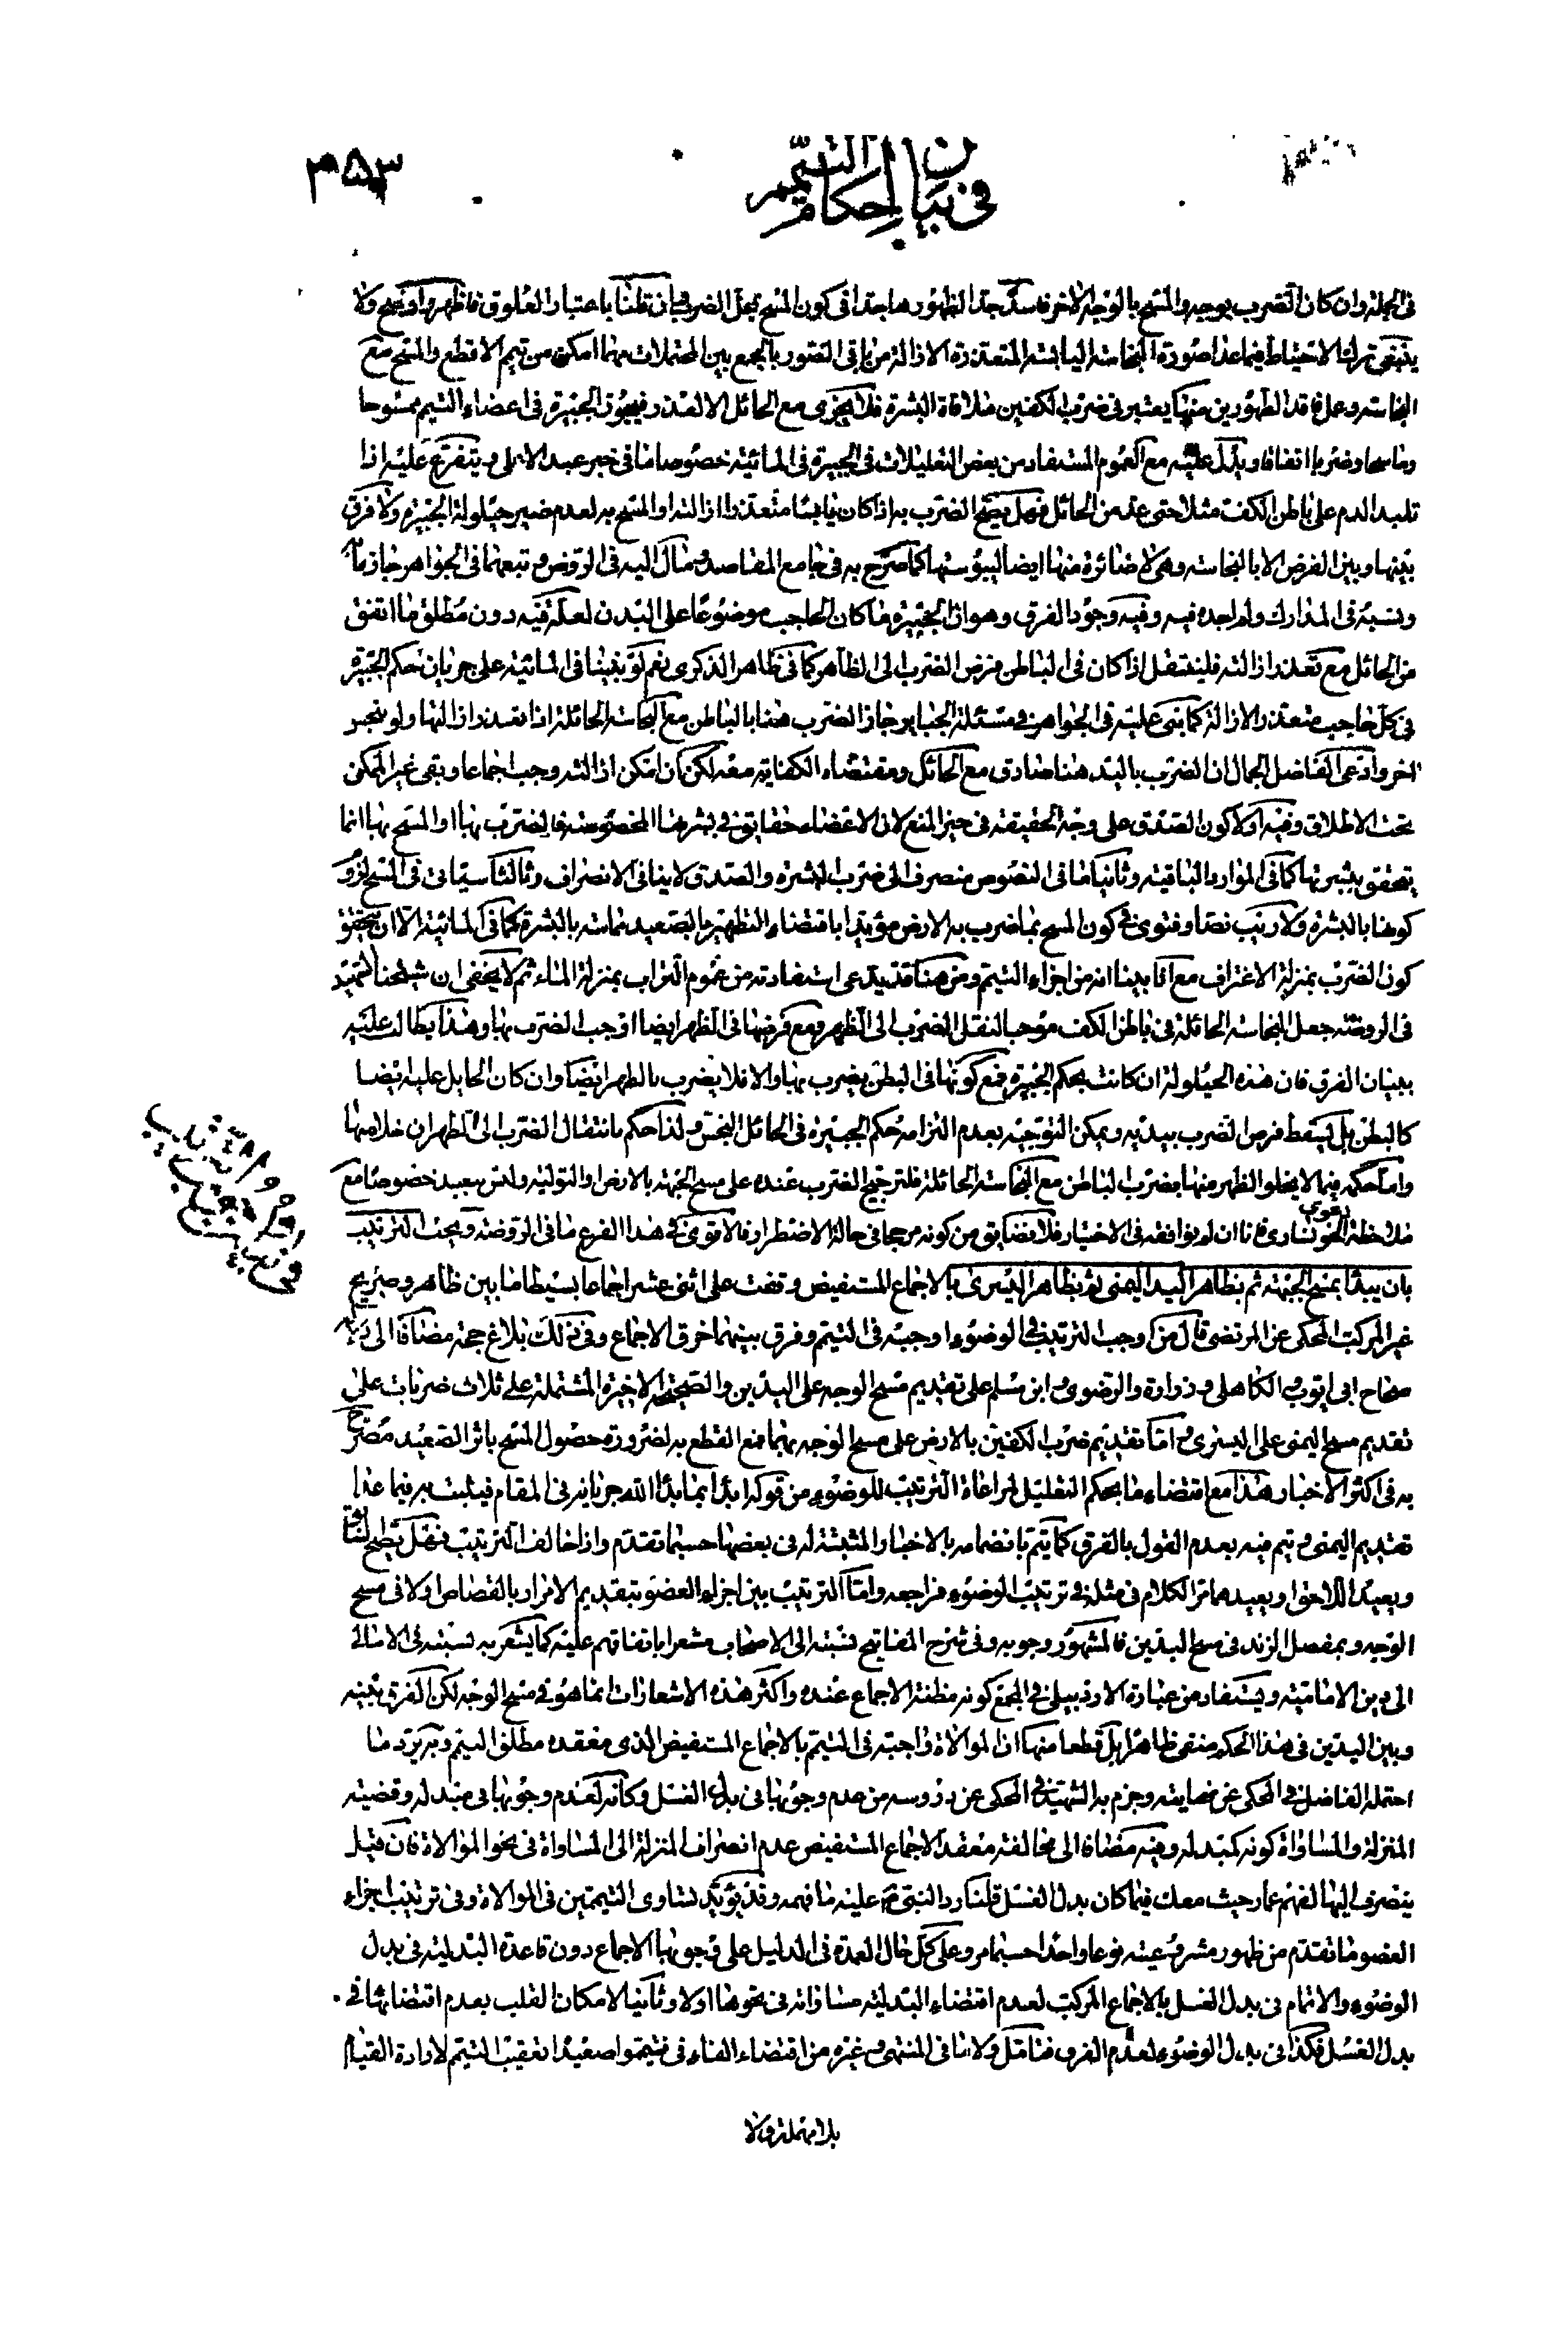 في بيان احكام التيمم
٣٥٣
في الجملة وان كان الضرب بوجه والمسح بالوجه الاخر فاسد جدا لظهورها جدا في كون المسح بمحل الضرب فان قلنا باعتبار العلوق فاظهر واوضح ولا
ينبغي ترك الاحتياط فيما عدا صورة النجاسة اليابسة المتعذرة الازالة من باقي الصور بالجمع بين المحتملات مهما امكن من تيمم الاقطع والمسح مع
النجاسة وعلى فاقد الطهورين منها يعتبر في ضرب الكفين ملاقاة البشرة فلا يجزي مع الحائل الا لعذر فيجوز كالجبيرة في اعضاء التيمم ممسوحا
وماسحا وضربا اتفاقا ويدل عليه مع العموم المستفاد من بعض التعليلات في الجبيرة في المائية خصوصا ما في خبر عبد الاعلى ويتفرع عليه اذا
تلبد الدم على باطن الكف مثلا حتى عد من الحائل فهل يصح الضرب به اذا كان يابسا متعذرا ازالته او المسح به لعدم ضير حيلولة الجبيرة ولا فرق
بينها وبين الفرض الا بالنجاسة وهي لا ضائرة منها ايضا ليبوستها كما صرح به في جامع المقاصد ومال اليه في الروض وتبعهما في الجواهر جازما
ونسبة في المدارك ولم اجده فيه وفيه وجود الفرق وهو ان الجبيرة ما كان الحاجب موضوعا على البدن لعلة فيه دون مطلق ما اتفق
من الحائل مع تعذر ازالته فلينتقل اذا كان في الباطن فرض الضرب الى الظاهر كما في ظاهر الذكرى نعم لو بنينا في المائية على جريان حكم الجبيرة
في كل حاجب متعذر الازالة كما بنى عليه في الجواهر في مسئلة الجبائر جاز الضرب هنا بالباطن مع النجاسة الحائلة اذا تعذر ازالتها ولو بنجس
اخر وادعى الفاضل الجمال ان الضرب باليد هنا صادق مع الحائل ومقتضاه الكفاية معه لكن كان امكن ازالته وجب اجماعا وبقى غير الممكن
تحت الاطلاق وفيه اولا كون الصدق على وجه الحقيقة في حيز المنع لان الاعضاء حقايق في بشرتها المخصوصة فالضرب بها او المسح بها انما
يتحقق ببشرتها كما في الموارد الباقية وثانيا ما في النصوص منصرف الى ضرب البشرة والصدق لا ينافي الانصراف وثالثا سياتي في المسح لزوم
كونها بالبشرة ولا ريب نصا وفتوى في كون المسح بما ضرب به الارض مؤيدا باقتضاء التطهير بالصعيد مماسته بالبشرة كما في المائية الا ان يحقق
كون الضرب بمنزلة الاغتراف مع انا بينا انه من اجزاء التيمم ومن هنا قد يدعى استفادته من عموم التراب بمنزلة الماء ثم لا يخفى ان شيخنا الشهيد
في الروضة جعل النجاسة الحائلة في باطن الكف موجبا لنقل الضرب الى الظهر ومع فرضها في الظهر ايضا اوجب الضرب بها وهذا يطالب عليه
ببيان الفرق فان هذه الحيلولة ان كانت بحكم الجبيرة فمع كونها في البطن يضرب بها والا فلا يضرب بالظهر ايضا وان كان الحايل عليه ايضا
كالبطن بل يسقط فرض الضرب بيديه ويمكن التوجيه بعدم التزامه حكم الجبيرة في الحائل النجس ولذا حكم بانتقال الضرب الى الظهر ان خلا منها
واما حكمه فيما لا يخلو الظهر منها بضرب الباطن مع النجاسة الحائلة فلترجيح الضرب عنده على مسح الجبهة بالارض والتولية وليس ببعيد خصوصا مع
ملاحظة دعوى الخونساري فانا ان لم نوافقه في الاختيار فلا نضايق من كونه مرجحا في حالة الاضطرار فالاقوى في هذا الفرع ما في الروضة ويجب الترتيب
بان يبدأ بمسح الجبهة ثم بظاهر اليد اليمنى ثم بظاهر اليسرى بالاجماع المستفيض وقفت على اثنى عشر اجماعا بسيطا ما بين ظاهر وصريح
غير المركب المحكي عن المرتضى قال من اوجب الترتيب في الوضوء اوجبه في التيمم وفرق بينهما خرق الاجماع وفي ذلك بلاغ حجة مضافا الى دلالة
صحاح ابي ايوب والكاهلي وزرارة والرضوي وابن مسلم على تقديم مسح الوجه على اليدين والصحيحة الاخيرة المشتملة على ثلاث ضربات على
تقديم مسح اليمنى على اليسرى واما تقديم ضرب الكفين بالارض على مسح الوجه بهما فمع القطع به لضرورة حصول المسح باثر الصعيد مصرح
به في اكثر الاخبار هذا مع اقتضاء ما بحكم التعليل لمراعاة الترتيب للوضوء من قوله ابدأ بما بدأ الله جريانه في المقام فيثبت به فيما عدا
تقديم اليمنى ويتم فيه بعدم القول بالفرق كما يتم بانضمامه بالاخبار المثبتة له في بعضها حسبما تقدم واذا خالف الترتيب فهل يصح السابق
ويعيد اللاحق او يعيدهما مر الكلام في مثله في ترتيب الوضوء فراجعه واما الترتيب بين اجزاء العضو بتقديم الامرار بالقصاص اولا في مسح
الوجه وبمفصل الزند في مسح اليدين فالمشهور وجوبه وفي شرح المفاتيح نسبته الى الاصحاب مشعرا باتفاقهم عليه كما يشعر به نسبته في الامالي
الى دين الامامية ويستفاد من عبارة الاردبيلي في المجمع كونه مظنة الاجماع عنده واكثر هذه الاشعارات انما هو في مسح الوجه لكن الفرق بينه
وبين اليدين في هذا الحكم منتفي ظاهرا بل قطعا منها ان الموالاة واجبة في التيمم بالاجماع المستفيض الذي معقده مطلق التيمم وبه يرد ما
احتمله الفاضل في المحكي عن نهايته وجزم به الشهيد في المحكي عن دروسه من عدم وجوبها في بدل الغسل وكانه لعدم وجوبها في مبدله وقضية
المنزلة والمساواة كونه كمبدله وفيه مضافا الى مخالفته معقد الاجماع المستفيض عدم انصراف المنزلة الى المساواة في نحو الموالاة فان قيل
ينصرف اليها لفهم عمار حيث معك فيما كان بدل الغسل قلنا رد النبي ص عليه ما فهمه وقد يؤيد تساوي التيممين في الموالاة وفي ترتيب اجزاء
العضو ما تقدم من ظهور مشروعيته نوعا واحدا حسبما مر وعلى كل حال العمدة في الدليل على وجوبها الاجماع دون قاعدة البدلية في بدل
الوضوء والاتمام في بدل الغسل بالاجماع المركب لعدم اقتضاء البدلية مساواته في نحوها اولا وثانيا لامكان القلب بعدم اقتضائها في
بدل الغسل فكذا في بدل الوضوء لعدم الفرق فتامل ولا ما في المنتهى وغيره من اقتضاء الفاء في فتيمموا صعيدا تعقيب التيمم لارادة القيام
بلا مهلة ولا